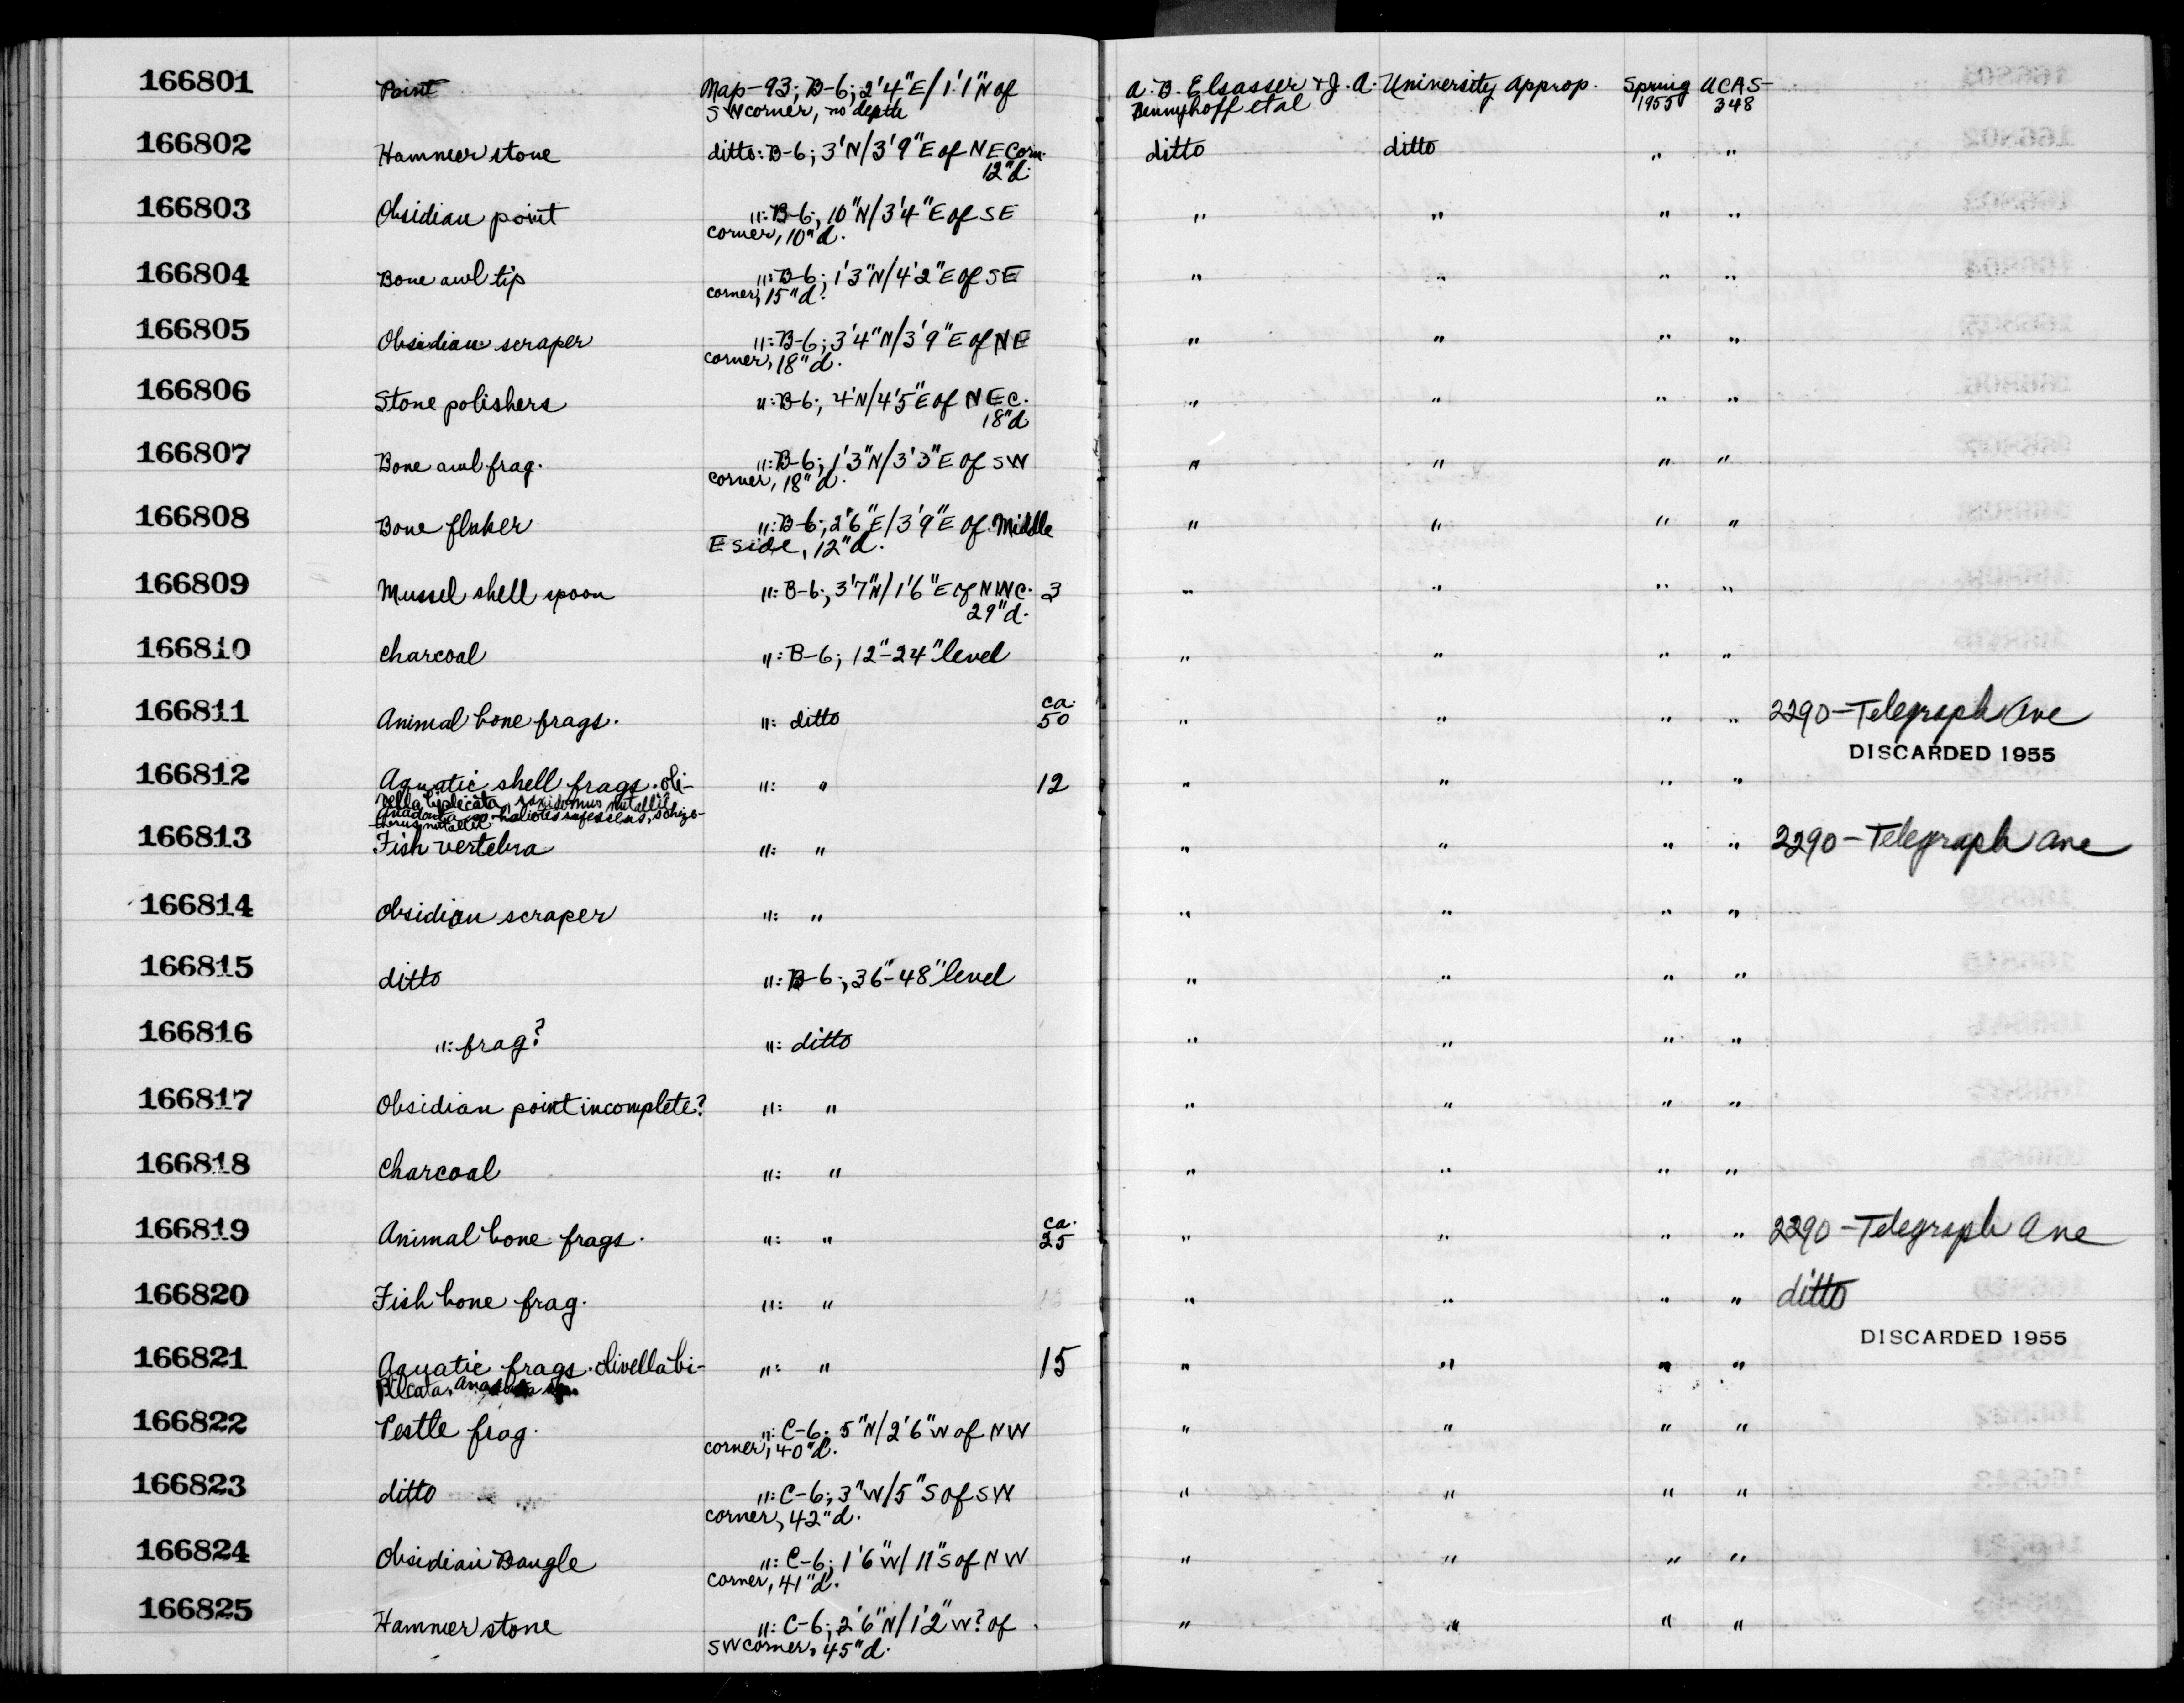 166801 Point Map-93; B-6; 2'4"E/1'1"N of A. B. Elsasser & J. A. University Approp. Spring UCAS-
SW corner, no depth Bennyhoff et al 1955 348
166802 Hammer stone ditto: B-6; 3'N/3'9"E of NE Corn. ditto ditto " "
12"d.
166803 Obsidian point ": B-6; 10"N/3'4"E of SE " " " "
corner, 10"d.
166804 Bone awl tip ": B-6; 1'3"N/4'2"E of SE " " " "
corner, 15"d.
166805 Obsidian scraper ": B-6; 3'4"N/3'9"E of NE " " " "
corner, 18"d.
166806 Stone polishers ": B-6; 4'N/4'5"E of NEC. " " " "
18"d
166807 Bone awl frag. ": B-6; 1'3"N/3'3"E of SW " " " "
corner, 18"d.
166808 Bone flaker ": B-6; 2'6"E/3'9"E of Middle " " " "
E side, 12"d.
166809 Mussel shell spoon ": B-6; 3'7"N/1'6"E of NWC. 3 " " " "
29"d.
166810 Charcoal ": B-6; 12"-24" level " " " "
166811 Animal bone frags. ": ditto ca. 50 " " " " 2290-Telegraph Ave
DISCARDED 1955
166812 Aquatic shell frags. Oli- ": " 12 " " " "
vella biplicata, saxidomus nutallii
Anadonta sp. haliotes rufescens, schizo-
therus nutallii
166813 Fish vertebra ": " " " " " 2290-Telegraph Ave
166814 Obsidian scraper ": " " " " "
166815 ditto ": B-6; 36"-48" level " " " "
166816 ": frag? ": ditto " " " "
166817 Obsidian point incomplete? ": " " " " "
166818 Charcoal ": " " " " "
166819 Animal bone frags. ": " ca. 25 " " " " 2290-Telegraph Ave
166820 Fish bone frag. ": " " " " " ditto
DISCARDED 1955
166821 Aquatic frags. Olivella bi- ": " 15 " " " "
plicata,
166822 Pestle frag. ": C-6; 5"N/2'6"W of NW " " " "
corner, 40"d.
166823 ditto ": C-6; 3"W/5"S of SW " " " "
corner, 42"d.
166824 Obsidian Bangle ": C-6; 1'6"W/11"S of NW " " " "
corner, 41"d.
166825 Hammer stone ": C-6; 2'6"N/1'2"W? of " " " "
SW corner, 45"d.